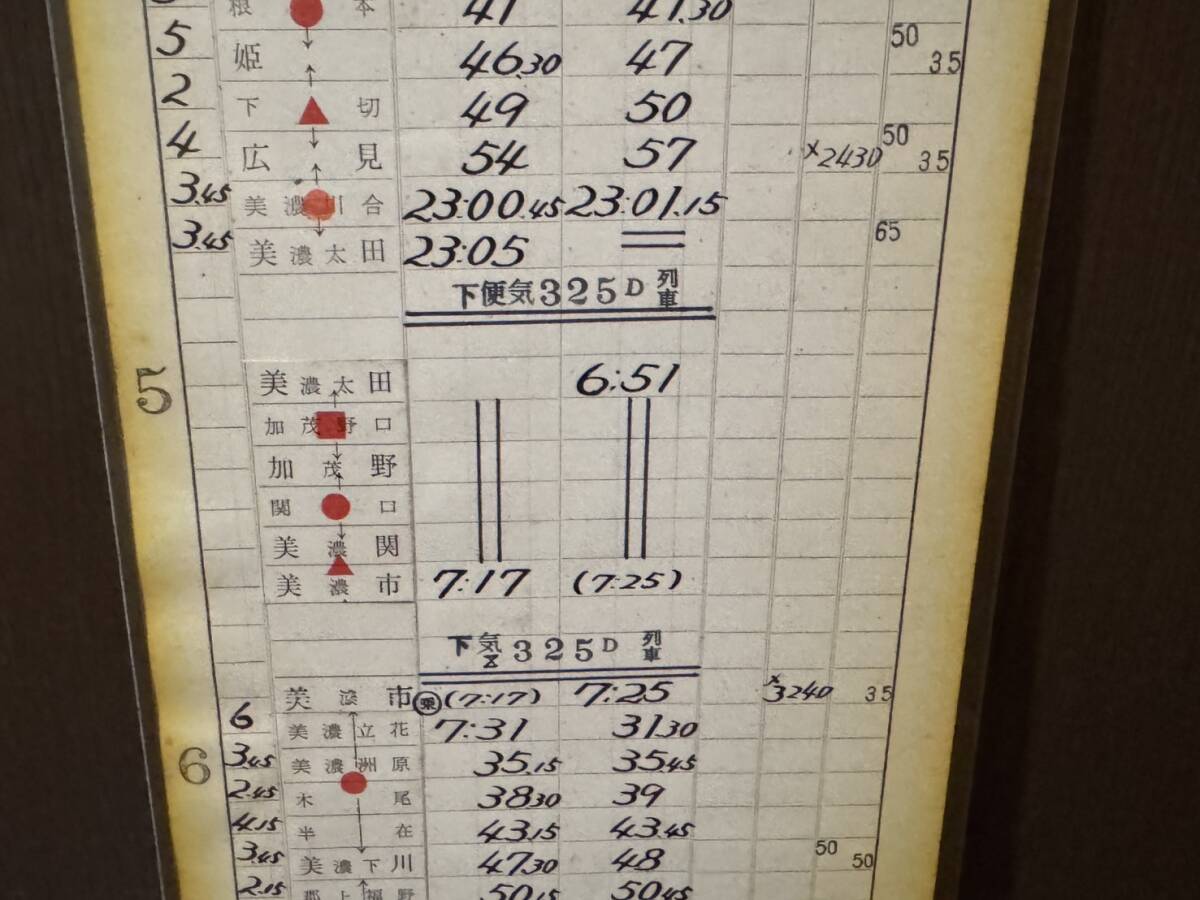 根 本 41 41.30
5 姫 46.30 47 50 35
2 下 切 49 50
4 広 見 54 57 x2430 50 35
3.45 美 濃 川 合 23:00.45 23:01.15
3.45 美 濃 太 田 23:05 65
下便気325D列車
5
美 濃 太 田 6:51
加 茂 野 口
加 茂 野
関 口
美 濃 関
美 濃 市 7:17 (7:25)
下気325D列車
美 濃 市 乗 (7:17) 7:25 x3240 35
6 美 濃 立 花 7:31 31.30
6
3.45 美 濃 洲 原 35.15 35.45
2.45 木 尾 38.30 39
4.15 半 在 43.15 43.45
3.45 美 濃 下 川 47.30 48 50 50
2.15 郡 上 福 野 50.15 50.45